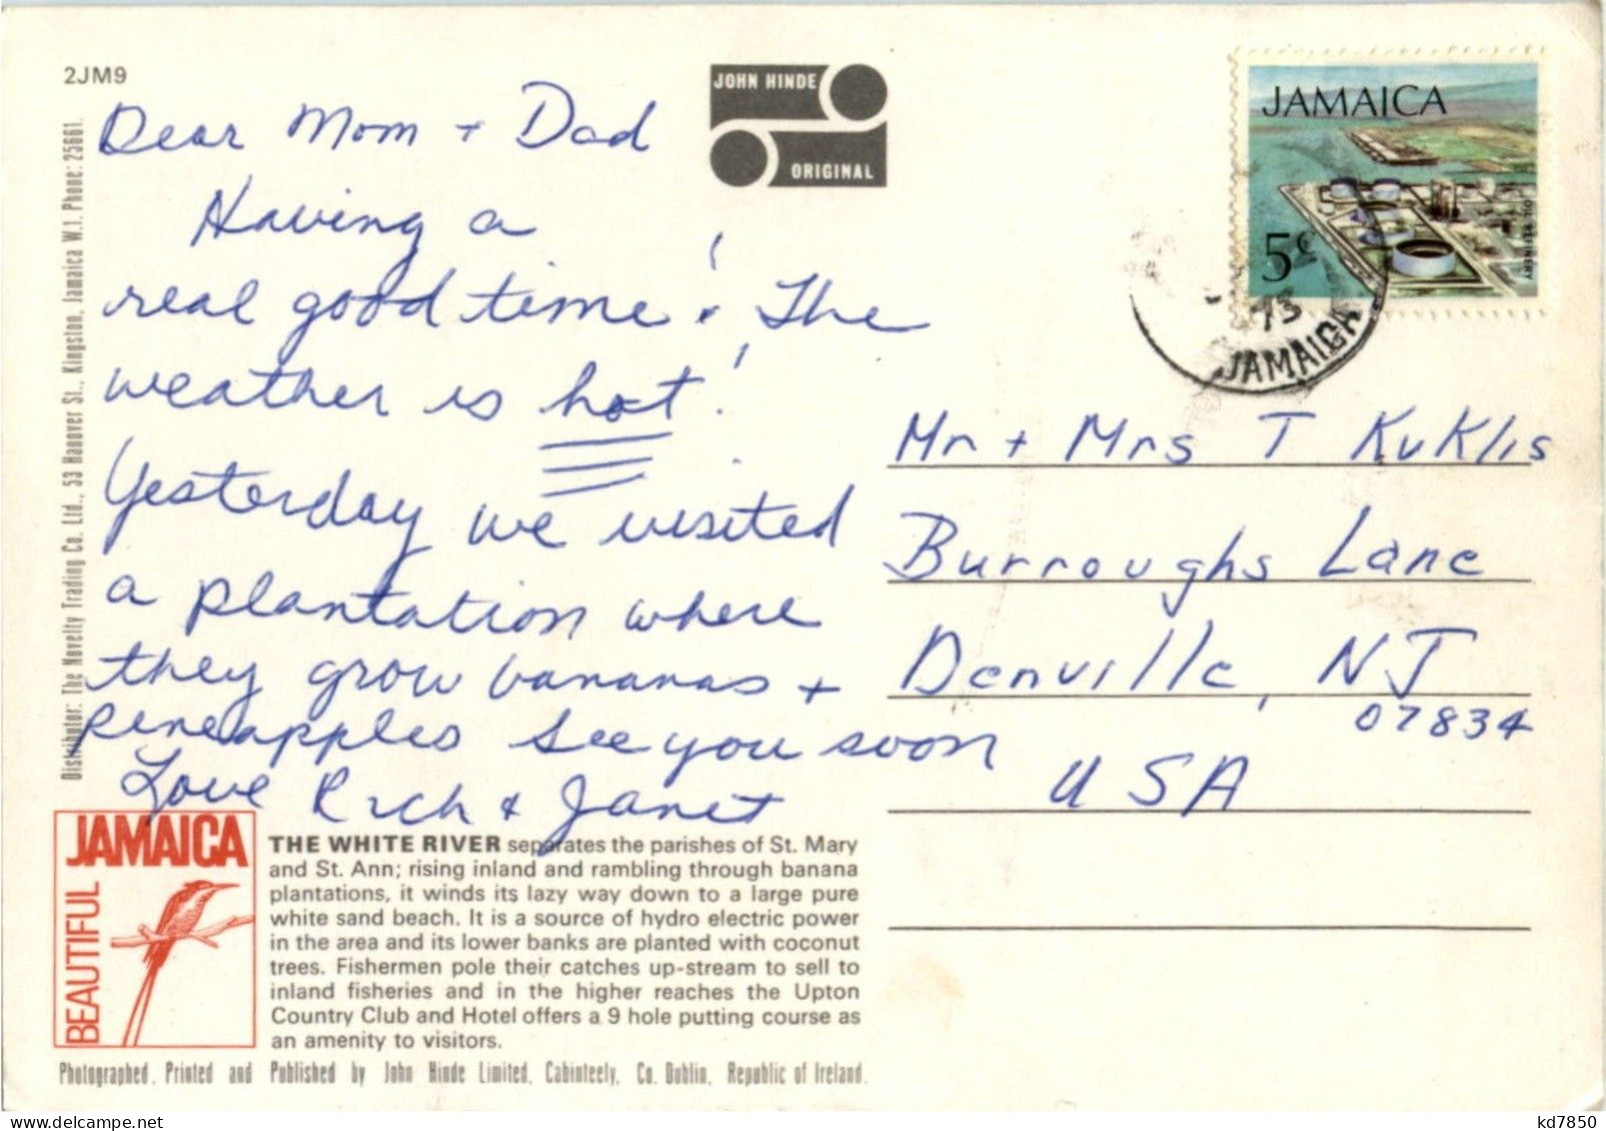 2JM9
JOHN HINDE
ORIGINAL
JAMAICA
5c
OIL REFINERY
73
JAMAICA
Dear Mom + Dad
Having a
real good time! The
weather is hot!
Yesterday we visited
a plantation where
they grow bananas +
pineapples See you soon
Love Rich & Janet
Mr + Mrs T Kuklis
Burroughs Lane
Denville, NJ
07834
USA
Distributor: The Novelty Trading Co. Ltd., 53 Hanover St., Kingston, Jamaica W.I. Phone: 25661.
BEAUTIFUL
JAMAICA
THE WHITE RIVER separates the parishes of St. Mary
and St. Ann; rising inland and rambling through banana
plantations, it winds its lazy way down to a large pure
white sand beach. It is a source of hydro electric power
in the area and its lower banks are planted with coconut
trees. Fishermen pole their catches up-stream to sell to
inland fisheries and in the higher reaches the Upton
Country Club and Hotel offers a 9 hole putting course as
an amenity to visitors.
Photographed, Printed and Published by John Hinde Limited, Cabinteely, Co. Dublin, Republic of Ireland.
kd7850